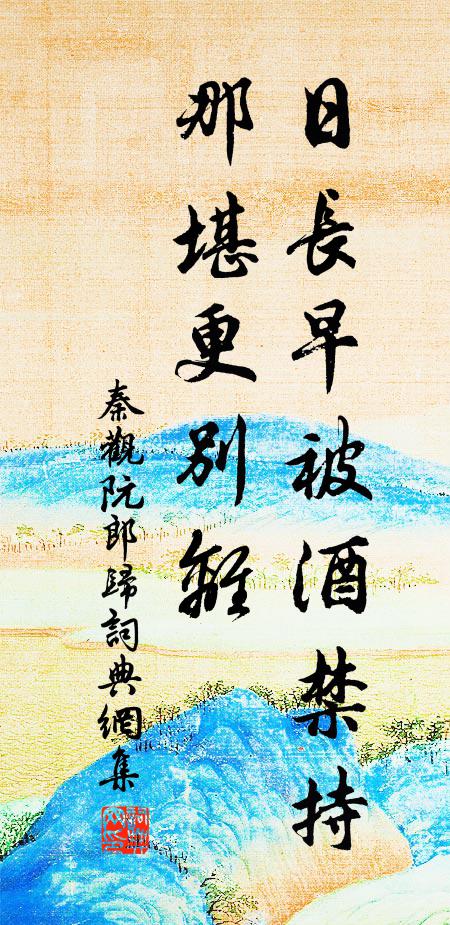 日長早被酒禁持
那堪更別離
秦觀阮郎歸詞典網集